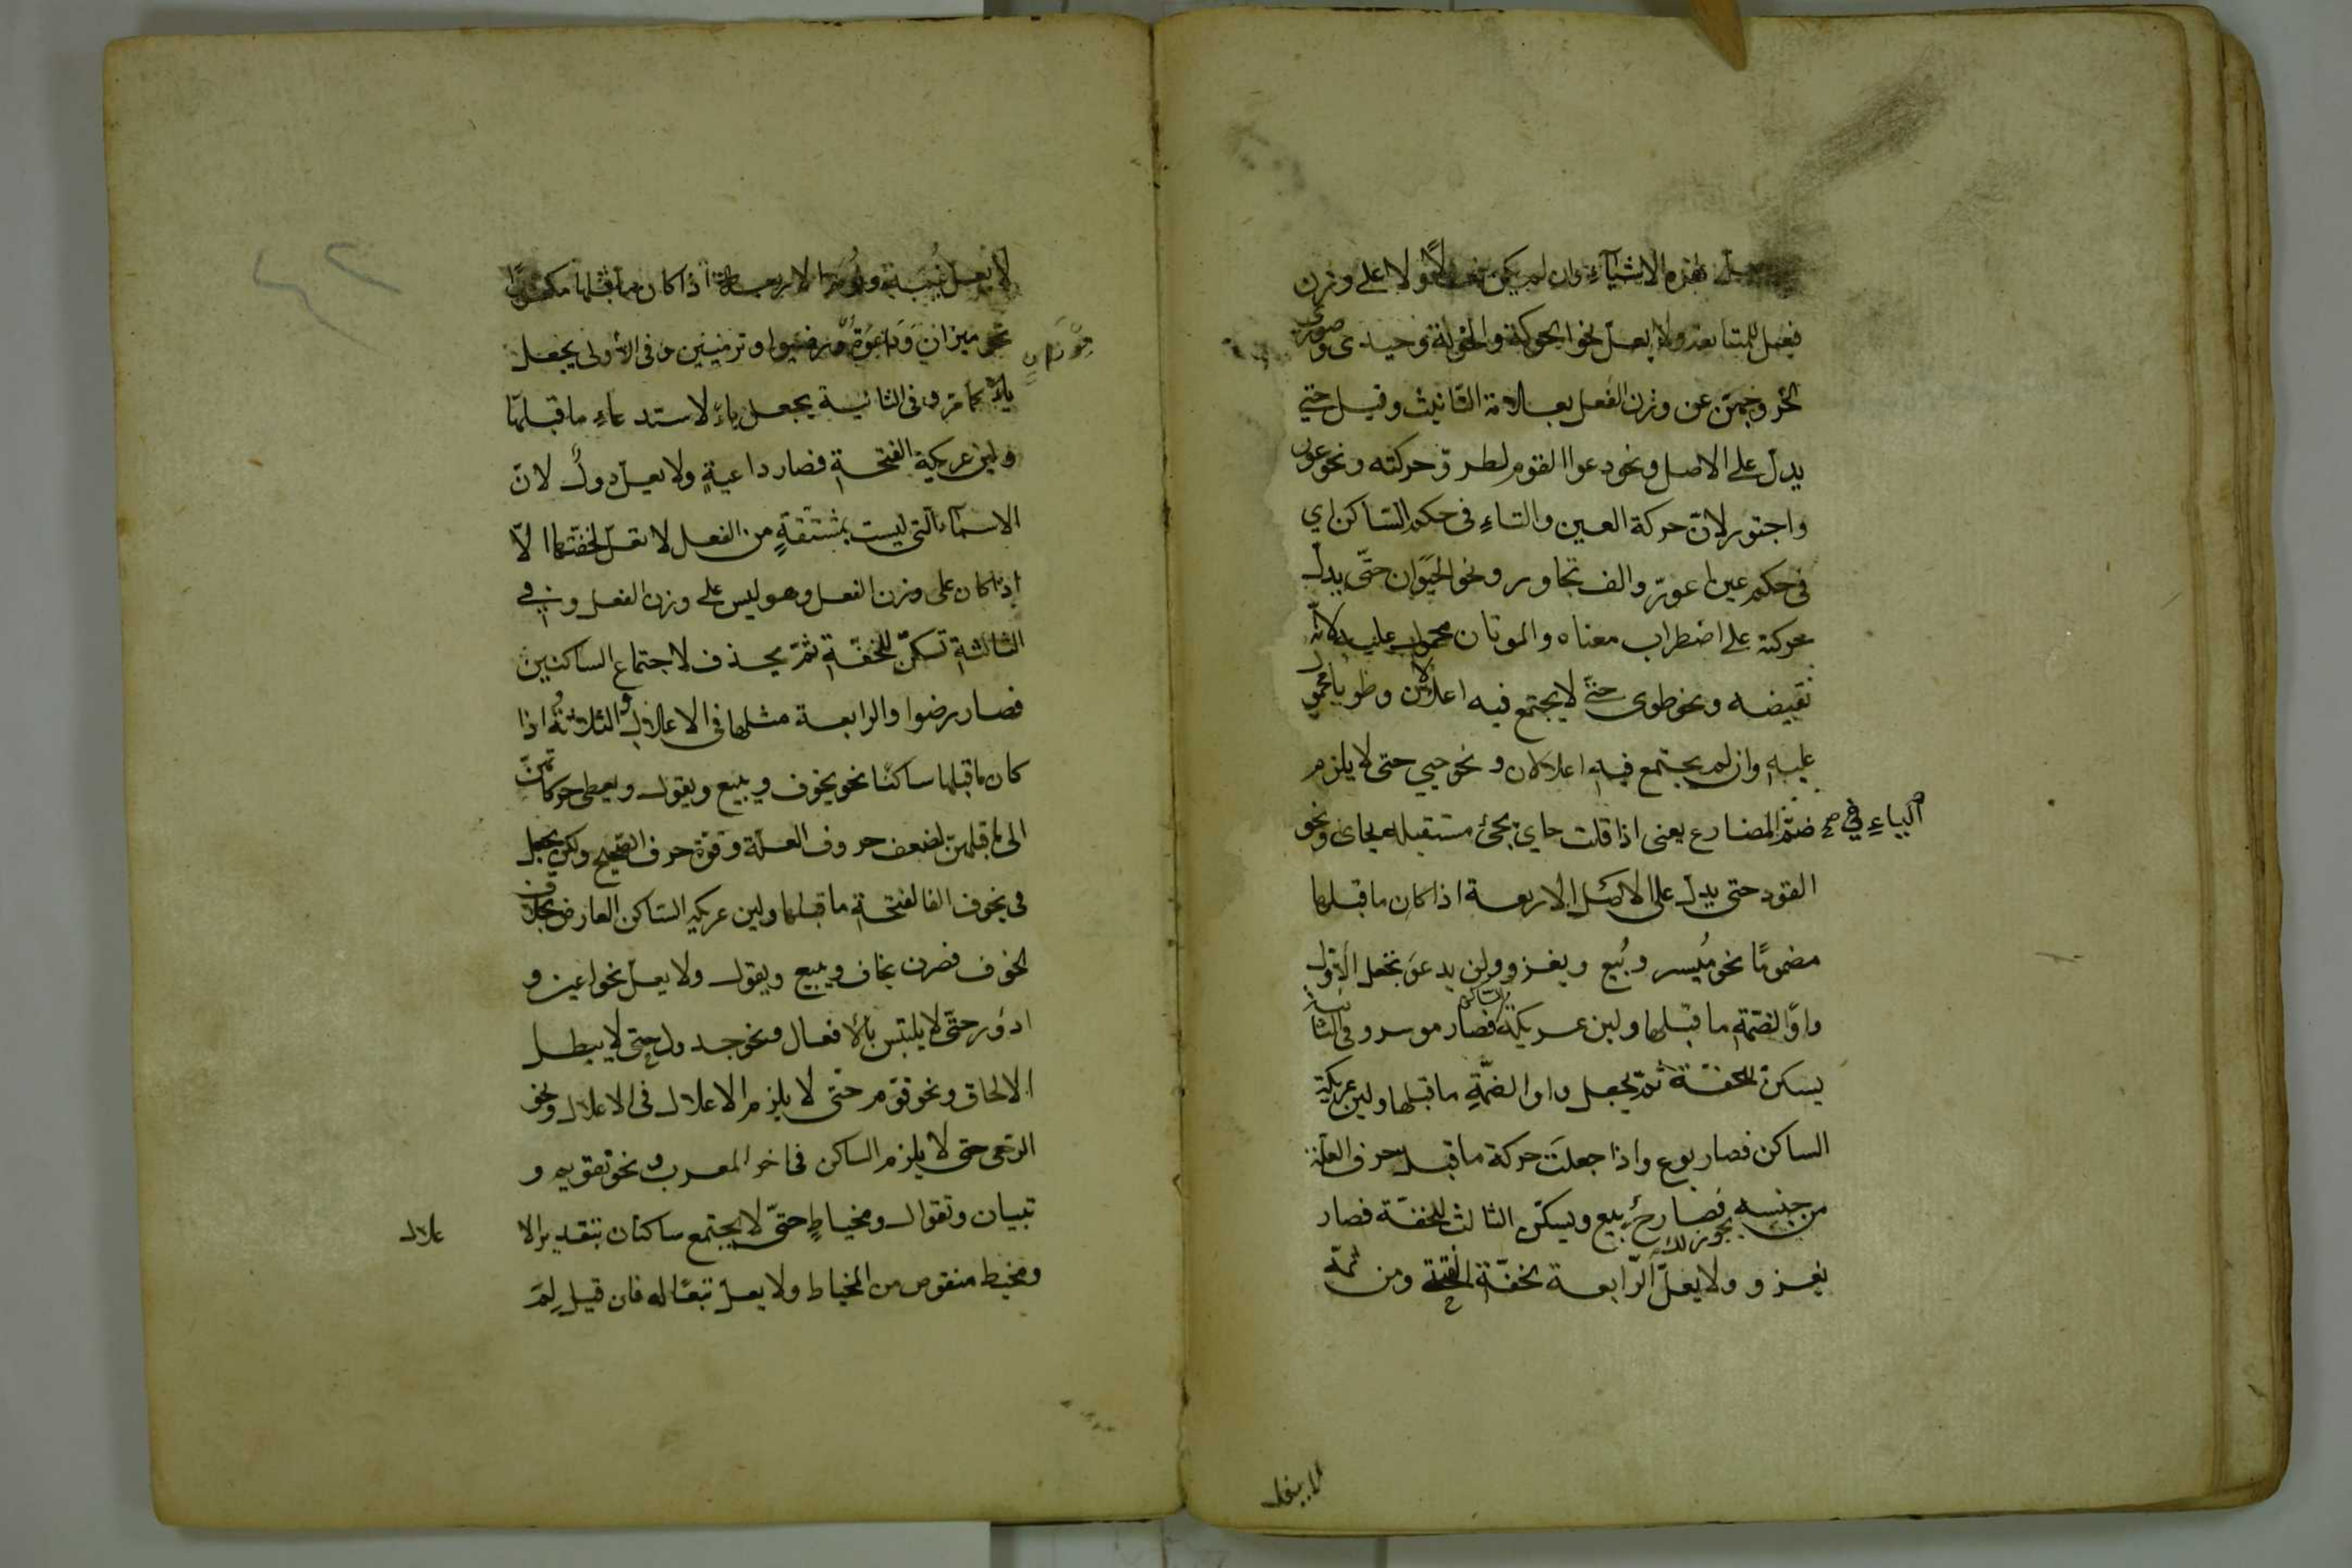 هذه الاشياء وان لم يكن فعلا ولا على وزن
فعل للمتابعة ولا يعل نحو الحوكة والخونة وحيدى وصورى
لخروجهن عن وزن الفعل بعلامة التانيث وقيل حتى
يدل على الاصل ونحو دعوا القوم لطرو حركته ونحو عور
واجتور لان حركة العين والتاء فى حكم الساكن اى
فى حكم عين اعور والف تجاور ونحو الحيوان حتى يدل
حركته على اضطراب معناه والموتان محمول عليه لانه
نقيضه ونحو طوى حتى لا يجتمع فيه اعلالان وطويا محمول
عليه وان لم يجتمع فيه اعلالان ونحو حيي حتى لا يلزم
ضم الياء في المضارع يعنى اذا قلت حاي يجئ مستقبله يحاى ونحو
القود حتى يدل على الاصل الاربعة اذا كان ما قبلها
مضموما نحو ميسر وبيع ويغزو ولن يدعو تجعل الاولى
واوا لضمة ما قبلها ولين عريكة الساكن فصار موسر وفى الثانية
يسكن للخفة ثم يجعل واوا لضمة ما قبلها ولين عريكة
الساكن فصار بوع واذا جعلت حركة ما قبل حرف العلة
من جنسه فصار ح بيع ويسكن الثالث للخفة فصار
يجوز لك
يغزو ولا يعل الرابعة لخفة الفتحة ومن ثمة
لا يعل
لا يعل غيبة ونومة الاربعة اذا كان ما قبلها مكسورا
نحو ميزان وداعوة ورضيوا وترميين وفى الاولى يجعل
موزان
ياء كما مر وفى الثانية يجعل ياء لاستدعاء ما قبلها
ولين عريكة الفتحة فصار داعية ولا يعل دول لان
الاسماء التى ليست بمشتقة من الفعل لا تعل لخفتها الا
اذا كان على وزن الفعل وهو ليس على وزن الفعل وفى
الثالثة تسكن للخفة ثم يحذف لاجتماع الساكنين
فصار رضوا والرابعة مثلها فى الاعلال والثلاثة اذا
كان ما قبلها ساكنا نحو يخوف ويبيع ويقول ويعطى حركاتهن
الى ما قبلهن لضعف حروف العلة وقوة حرف الصحيح ولكن يجعل
فى يخوف الفا لفتحة ما قبلها ولين عريكة الساكن العارض بخلاف
الخوف فصرن يخاف ويبيع ويقول ولا يعل نحو اعين و
ادور حتى لا يلتبس بالافعال ونحو جدول حتى لا يبطل
الالحاق ونحو قوم حتى لا يلزم الاعلال فى الاعلال ونحو
الرمى حتى لا يلزم الساكن فى اخر المعرب ونحو تقويم و
تبيان وتقوال ومخياط حتى لا يجتمع ساكنان بتقدير الا
علال
ومخيط منقوص من المخياط ولا يعل تبعا له فان قيل لم